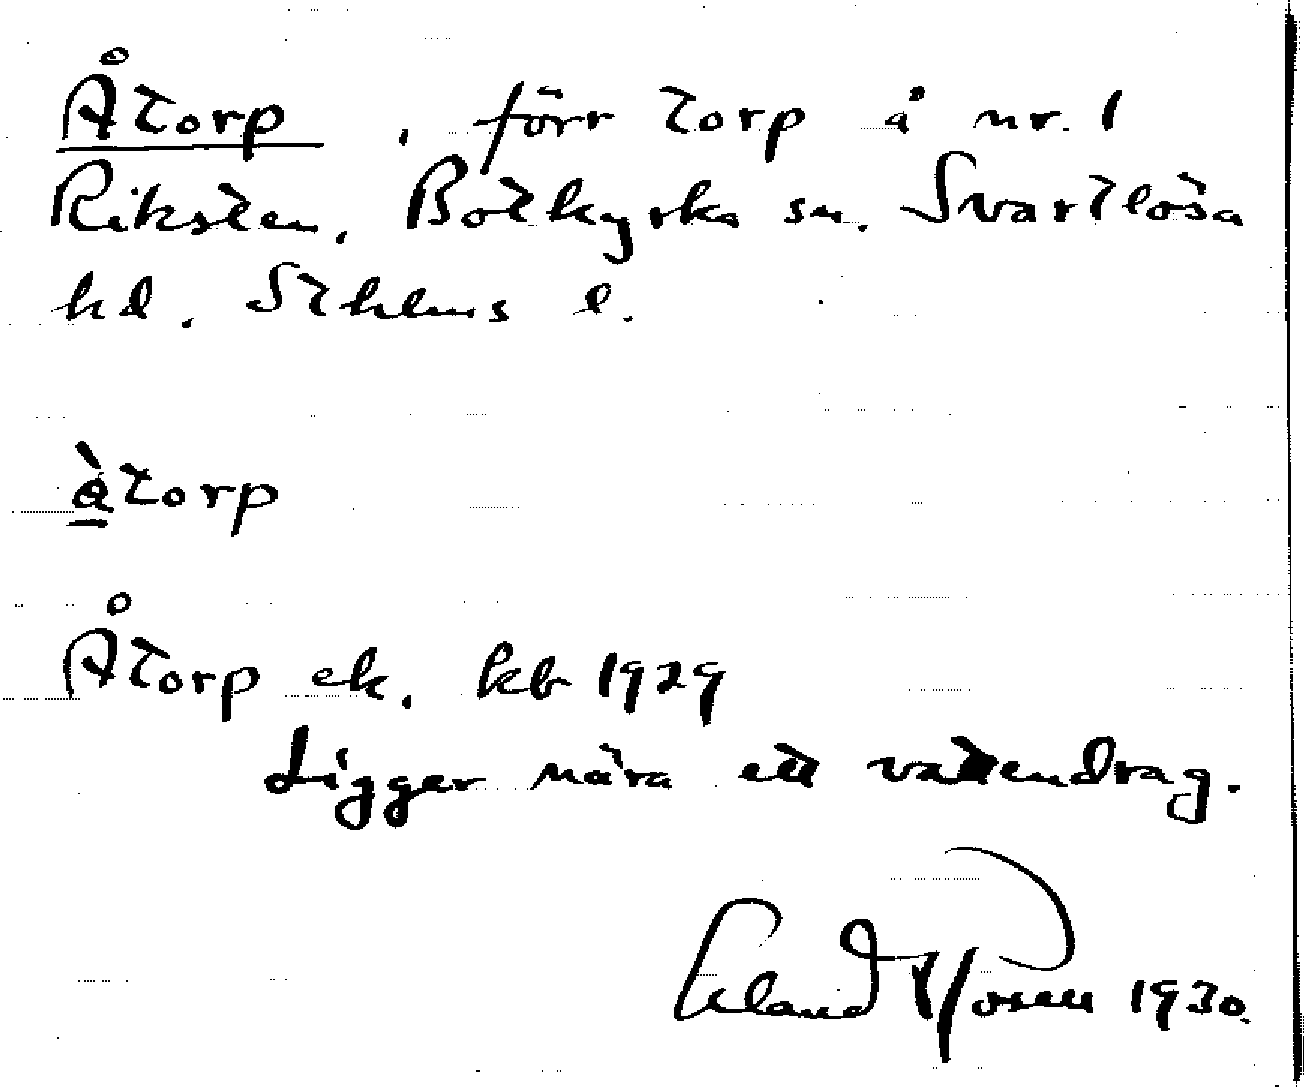 Åtorp, förr torp å nr. 1
Riksten, Botkyrka sn. Svartlösa
hd. Sthlms l.
å̀torp
Åtorp ek. kb 1929
Ligger nära ett vattendrag.
Erland Rosell 1930.